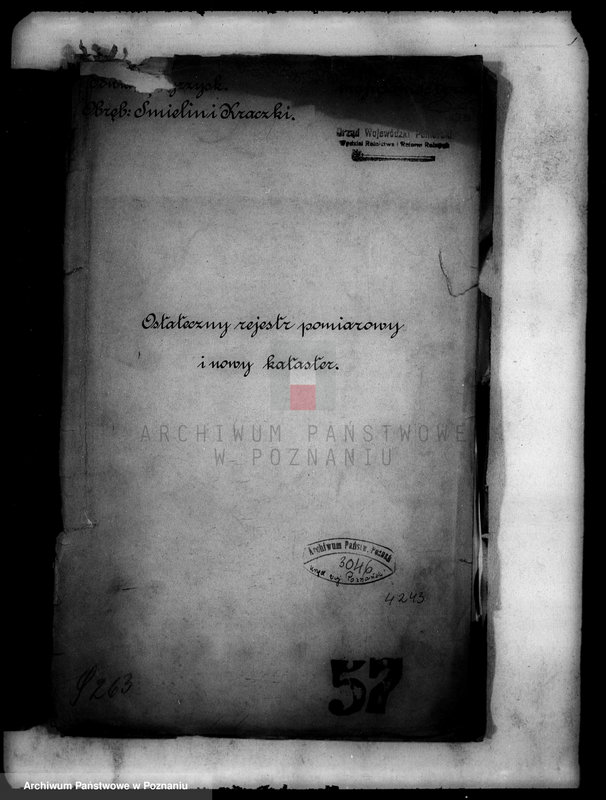 Obręb: Smielin i Kraczki.
Urząd Wojewódzki Pomorski
Wydział Rolnictwa i Reform Rolnych
Ostateczny rejestr pomiarowy
i nowy kataster.
ARCHIWUM PAŃSTWOWE
W POZNANIU
Archiwum Państw. Poznań
3046
Urząd Woj. Poznański
4243
263
57
Archiwum Państwowe w Poznaniu